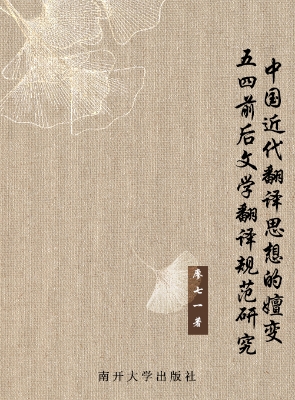 中国近代翻译思想的嬗变
五四前后文学翻译规范研究
廖七一 著
南开大学出版社